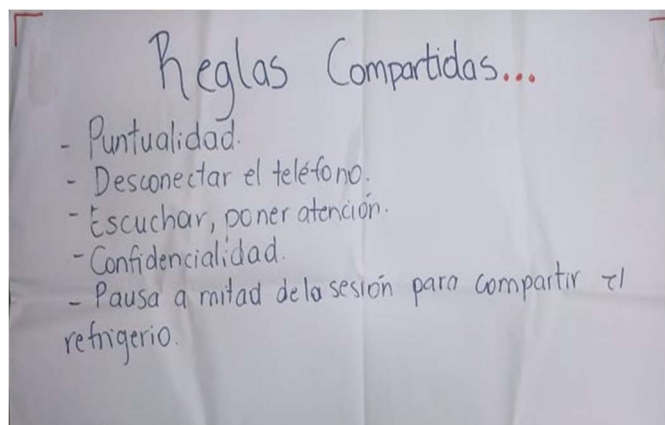 Reglas Compartidas...
- Puntualidad.
- Desconectar el teléfono.
- Escuchar, poner atención.
- Confidencialidad.
- Pausa a mitad de la sesión para compartir el
refrigerio.